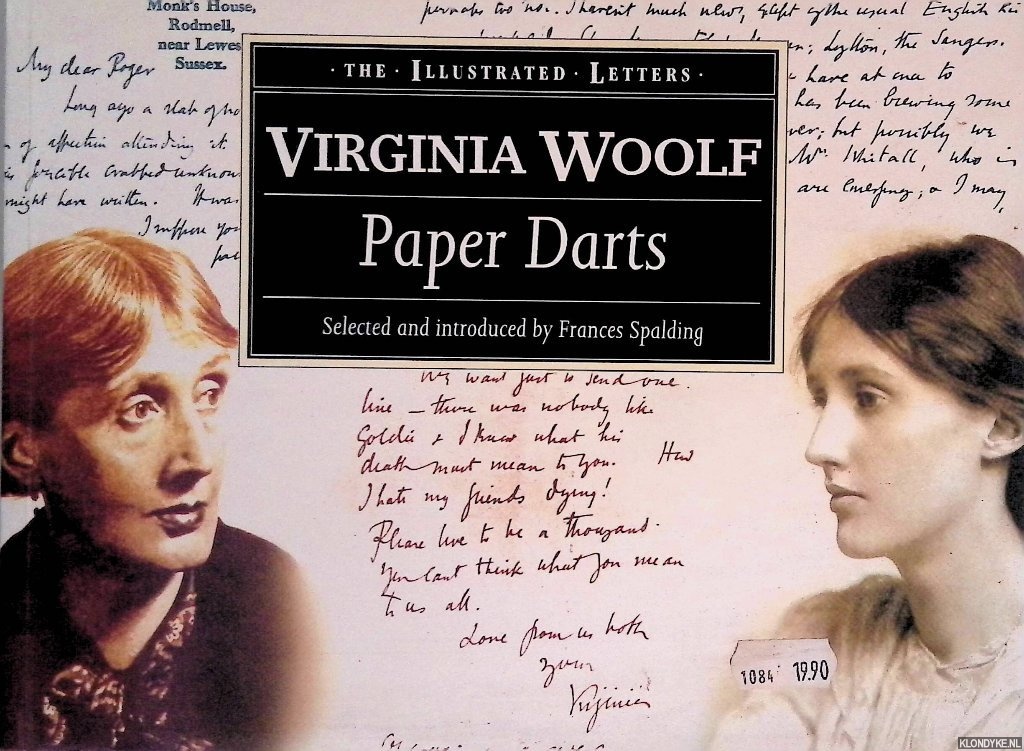 Monk's House,
Rodmell,
near Lewes
Sussex.
My dear Roger
Long ago a slab of
of affection attending it
might have written. It was
I suppose you
perhaps two no. I havent much news, except of the usual English
Lytton, the Sangers.
have at one to
has been brewing some
but possibly we
who is
are emerging; & I may,
· THE · ILLUSTRATED · LETTERS ·
VIRGINIA WOOLF
Paper Darts
Selected and introduced by Frances Spalding
We want just to send one
line — there was nobody like
Goldie & I know what his
death must mean to you. How
I hate my friends dying!
Please live to be a thousand.
You cant think what you mean
to us all.
Love from us both
Your
Virginia
1084 19.90
KLONDYKE.NL